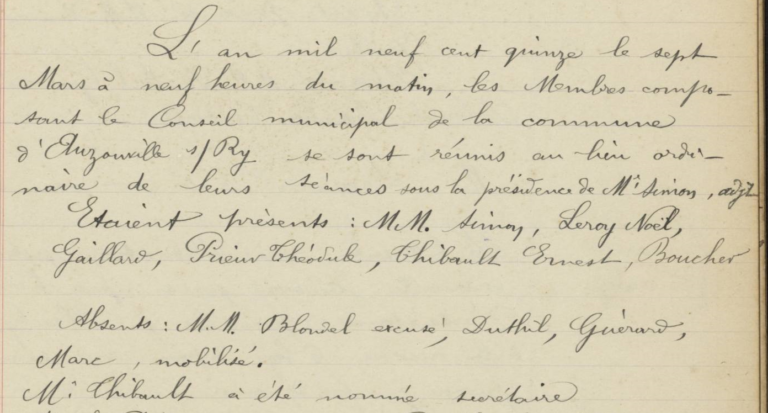 L'an mil neuf cent quinze le sept
Mars à neuf heures du matin, les Membres compo-
sant le Conseil municipal de la commune
d'Auzouville s/Ry se sont réunis au lieu ordi-
naire de leurs séances sous la présidence de Mr Simon, adjt
Etaient présents : M.M. Simon, Leroy Noël,
Gaillard, Prieur Théodule, Thibault Ernest, Boucher
Absents : M.M. Blondel excusé, Duthil, Guérard,
Marc, mobilisé.
Mr Thibault a été nommé secrétaire